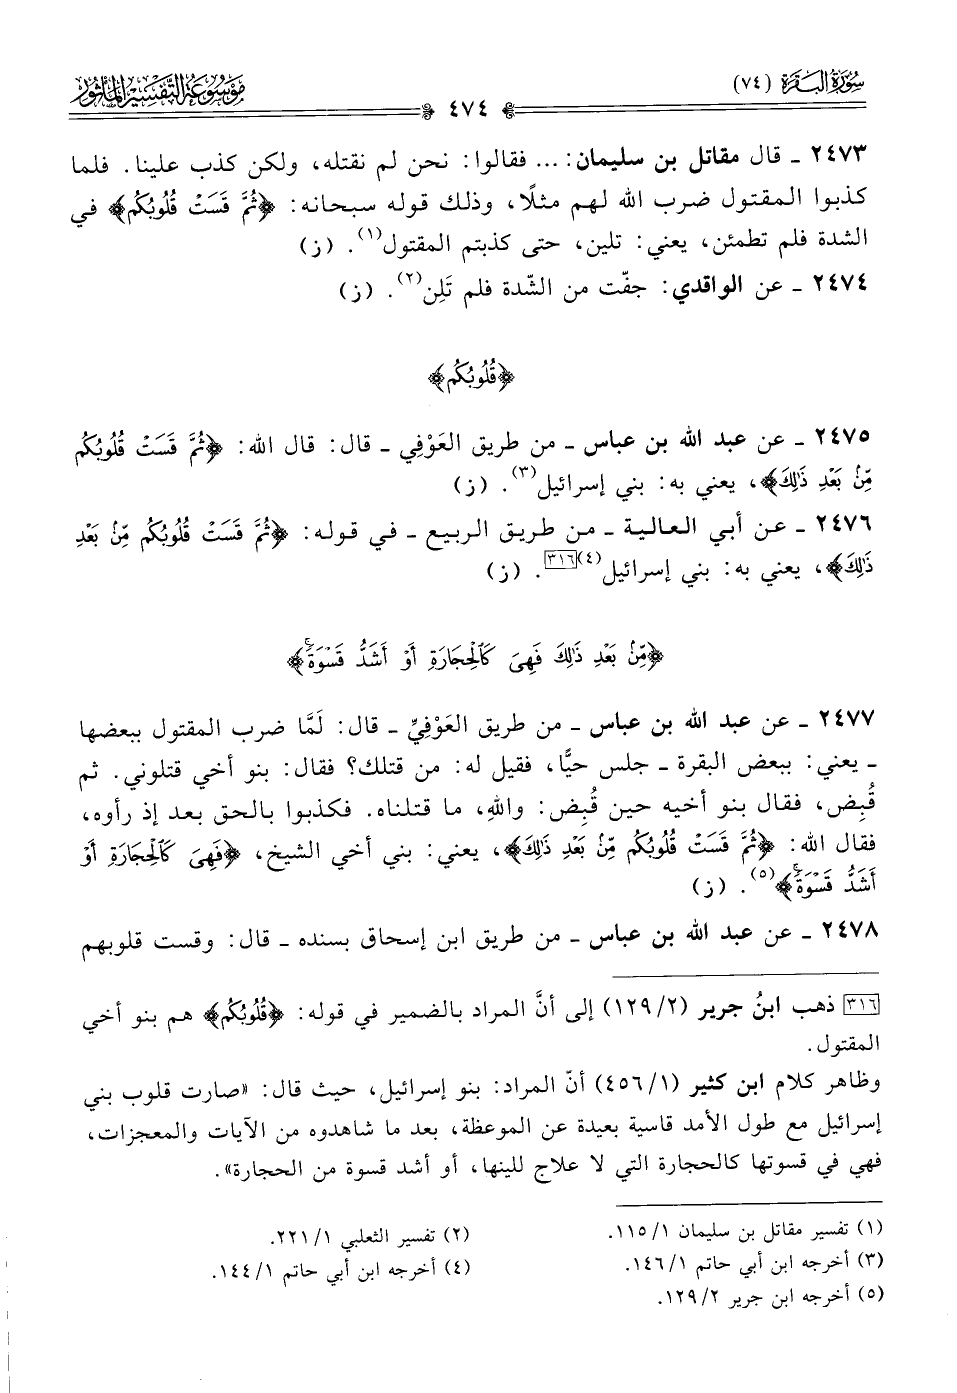 سُورَةُ البَقَرَةِ (٧٤)
٤٧٤
مَوْسُوعَةُ التَّفْسِيرِ المَأْثُورِ
٢٤٧٣ ـ قال مقاتل بن سليمان: ... فقالوا: نحن لم نقتله، ولكن كذب علينا. فلما
كذبوا المقتول ضرب الله لهم مثلًا، وذلك قوله سبحانه: ﴿ثُمَّ قَسَتْ قُلُوبُكُم﴾ في
الشدة فلم تطمئن، يعني: تلين، حتى كذبتم المقتول(١). (ز)
٢٤٧٤ ـ عن الواقدي: جفّت من الشّدة فلم تَلِن(٢). (ز)
﴿قُلُوبُكُم﴾
٢٤٧٥ ـ عن عبد الله بن عباس ـ من طريق العَوْفِي ـ قال: قال الله: ﴿ثُمَّ قَسَتْ قُلُوبُكُم
مِّنْ بَعْدِ ذَٰلِكَ﴾، يعني به: بني إسرائيل(٣). (ز)
٢٤٧٦ ـ عن أبي العالية ـ من طريق الربيع ـ في قوله: ﴿ثُمَّ قَسَتْ قُلُوبُكُم مِّنْ بَعْدِ
ذَٰلِكَ﴾، يعني به: بني إسرائيل(٤)[٣١٦]. (ز)
﴿مِّنْ بَعْدِ ذَٰلِكَ فَهِىَ كَالْحِجَارَةِ أَوْ أَشَدُّ قَسْوَةً ۚ﴾
٢٤٧٧ ـ عن عبد الله بن عباس ـ من طريق العَوْفِيِّ ـ قال: لَمَّا ضرب المقتول ببعضها
ـ يعني: ببعض البقرة ـ جلس حيًّا، فقيل له: من قتلك؟ فقال: بنو أخي قتلوني. ثم
قُبِض، فقال بنو أخيه حين قُبِض: واللهِ، ما قتلناه. فكذبوا بالحق بعد إذ رأوه،
فقال الله: ﴿ثُمَّ قَسَتْ قُلُوبُكُم مِّنْ بَعْدِ ذَٰلِكَ﴾، يعني: بني أخي الشيخ، ﴿فَهِىَ كَالْحِجَارَةِ أَوْ
أَشَدُّ قَسْوَةً ۚ﴾(٥). (ز)
٢٤٧٨ ـ عن عبد الله بن عباس ـ من طريق ابن إسحاق بسنده ـ قال: وقست قلوبهم
[٣١٦] ذهب ابنُ جرير (٢/ ١٢٩) إلى أنَّ المراد بالضمير في قوله: ﴿قُلُوبُكُم﴾ هم بنو أخي
المقتول.
وظاهر كلام ابن كثير (١/ ٤٥٦) أنّ المراد: بنو إسرائيل، حيث قال: «صارت قلوب بني
إسرائيل مع طول الأمد قاسية بعيدة عن الموعظة، بعد ما شاهدوه من الآيات والمعجزات،
فهي في قسوتها كالحجارة التي لا علاج للينها، أو أشد قسوة من الحجارة».
(١) تفسير مقاتل بن سليمان ١/ ١١٥.
(٢) تفسير الثعلبي ١/ ٢٢١.
(٣) أخرجه ابن أبي حاتم ١/ ١٤٦.
(٤) أخرجه ابن أبي حاتم ١/ ١٤٤.
(٥) أخرجه ابن جرير ٢/ ١٢٩.